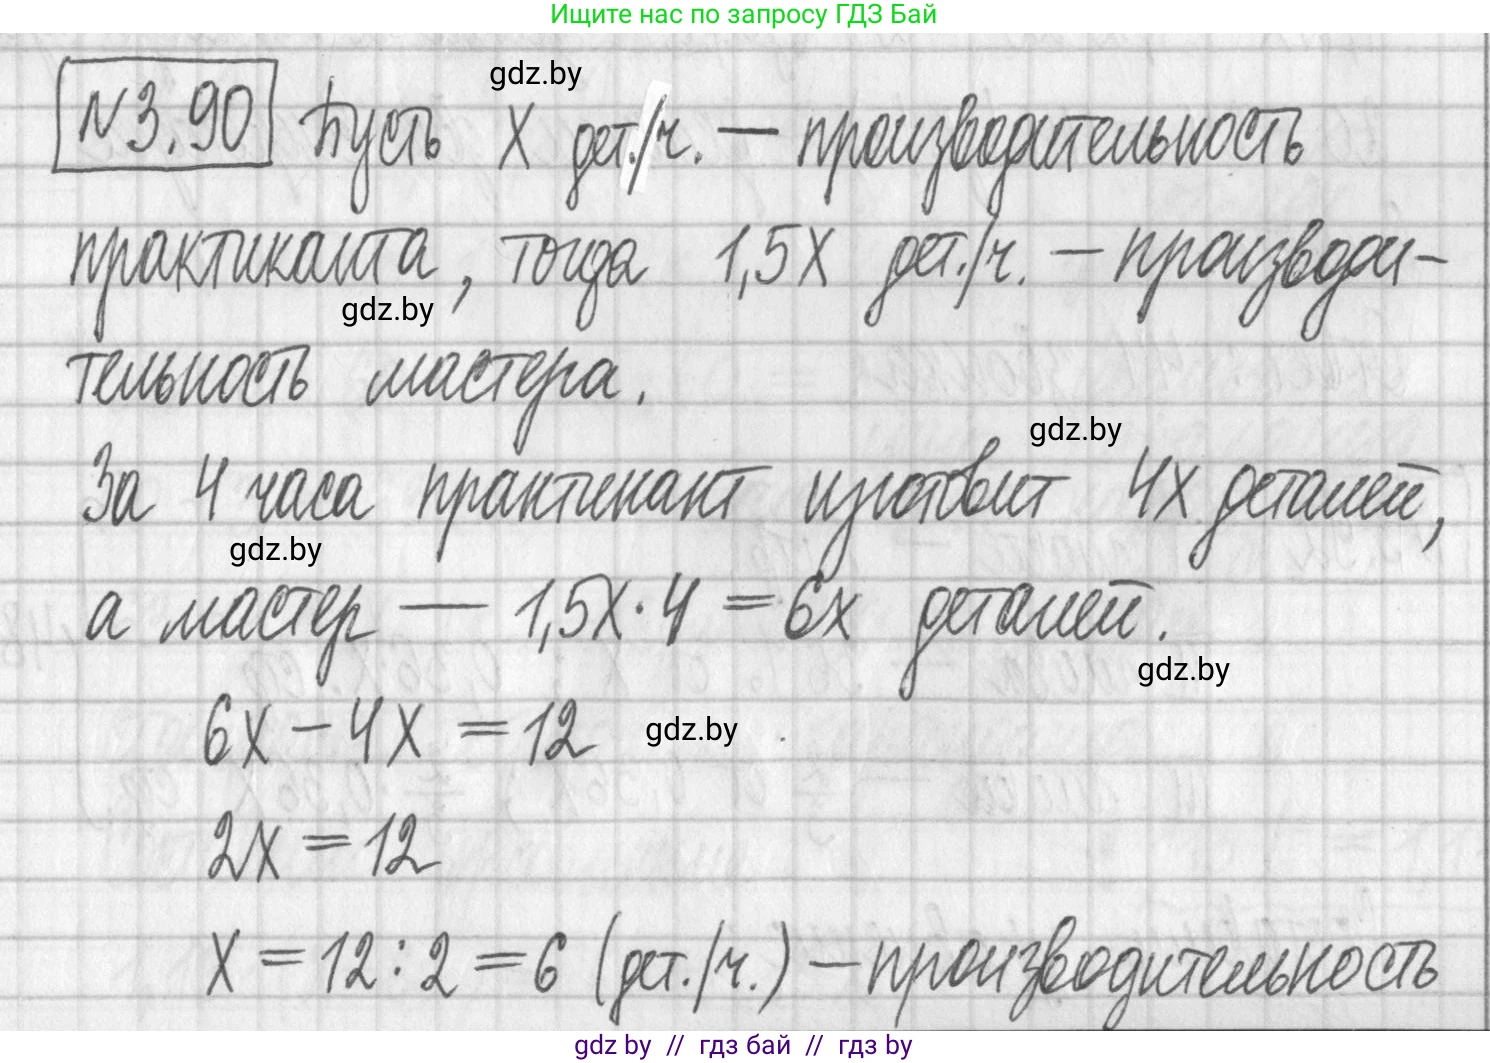 Ищите нас по запросу ГДЗ Бай
gdz.by
№3.90 Пусть x дет./ч. — производительность
практиканта, тогда 1,5x дет./ч. — производи-
gdz.by
тельность мастера.
gdz.by
За 4 часа практикант изготовит 4x деталей,
gdz.by
а мастер — 1,5x·4 = 6x деталей.
gdz.by
6x − 4x = 12
gdz.by
2x = 12
x = 12 : 2 = 6 (дет./ч.) — производительность
gdz by // гдз бай // гдз by